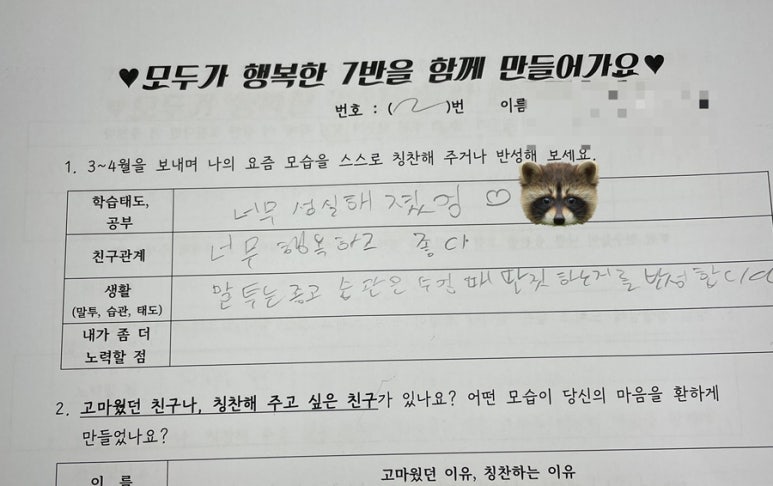 ♥모두가 행복한 7반을 함께 만들어가요♥
번호 : ( 2 )번 이름
1. 3~4월을 보내며 나의 요즘 모습을 스스로 칭찬해 주거나 반성해 보세요.
학습태도,
공부
너무 성실해 졌음 ♡
친구관계
너무 행복하고 좋다
생활
(말투, 습관, 태도)
말투는 좋고 습관은 수업 때 딴짓 하는거를 반성한다
내가 좀 더
노력할 점
2. 고마웠던 친구나, 칭찬해 주고 싶은 친구가 있나요? 어떤 모습이 당신의 마음을 환하게
만들었나요?
이 름
고마웠던 이유, 칭찬하는 이유